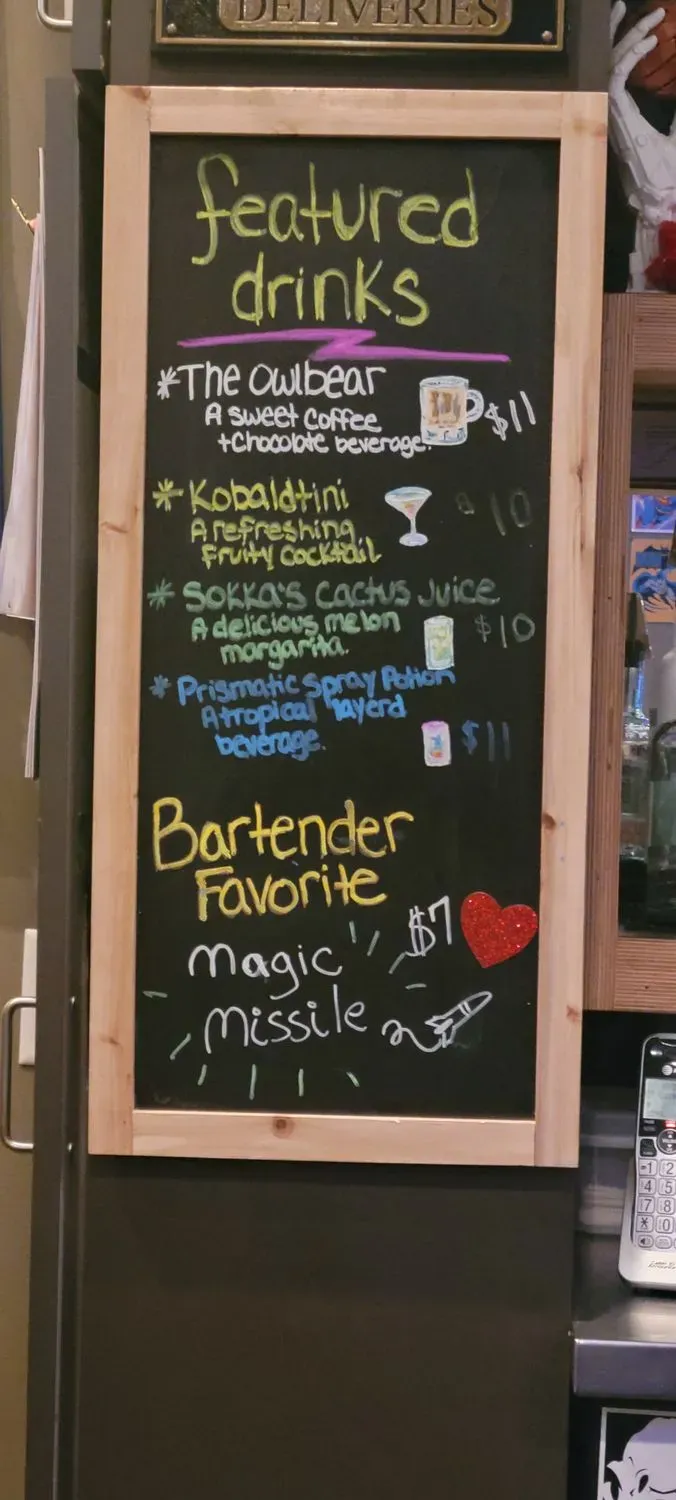 DELIVERIES
featured
drinks
*The Owlbear
A sweet Coffee
+Chocolate beverage.
$11
*Kobaldtini
A refreshing
fruity cocktail
$10
*Sokka's Cactus Juice
A delicious melon
margarita.
$10
*Prismatic Spray Potion
A tropical layerd
beverage.
$11
Bartender
Favorite
$7
Magic
Missile